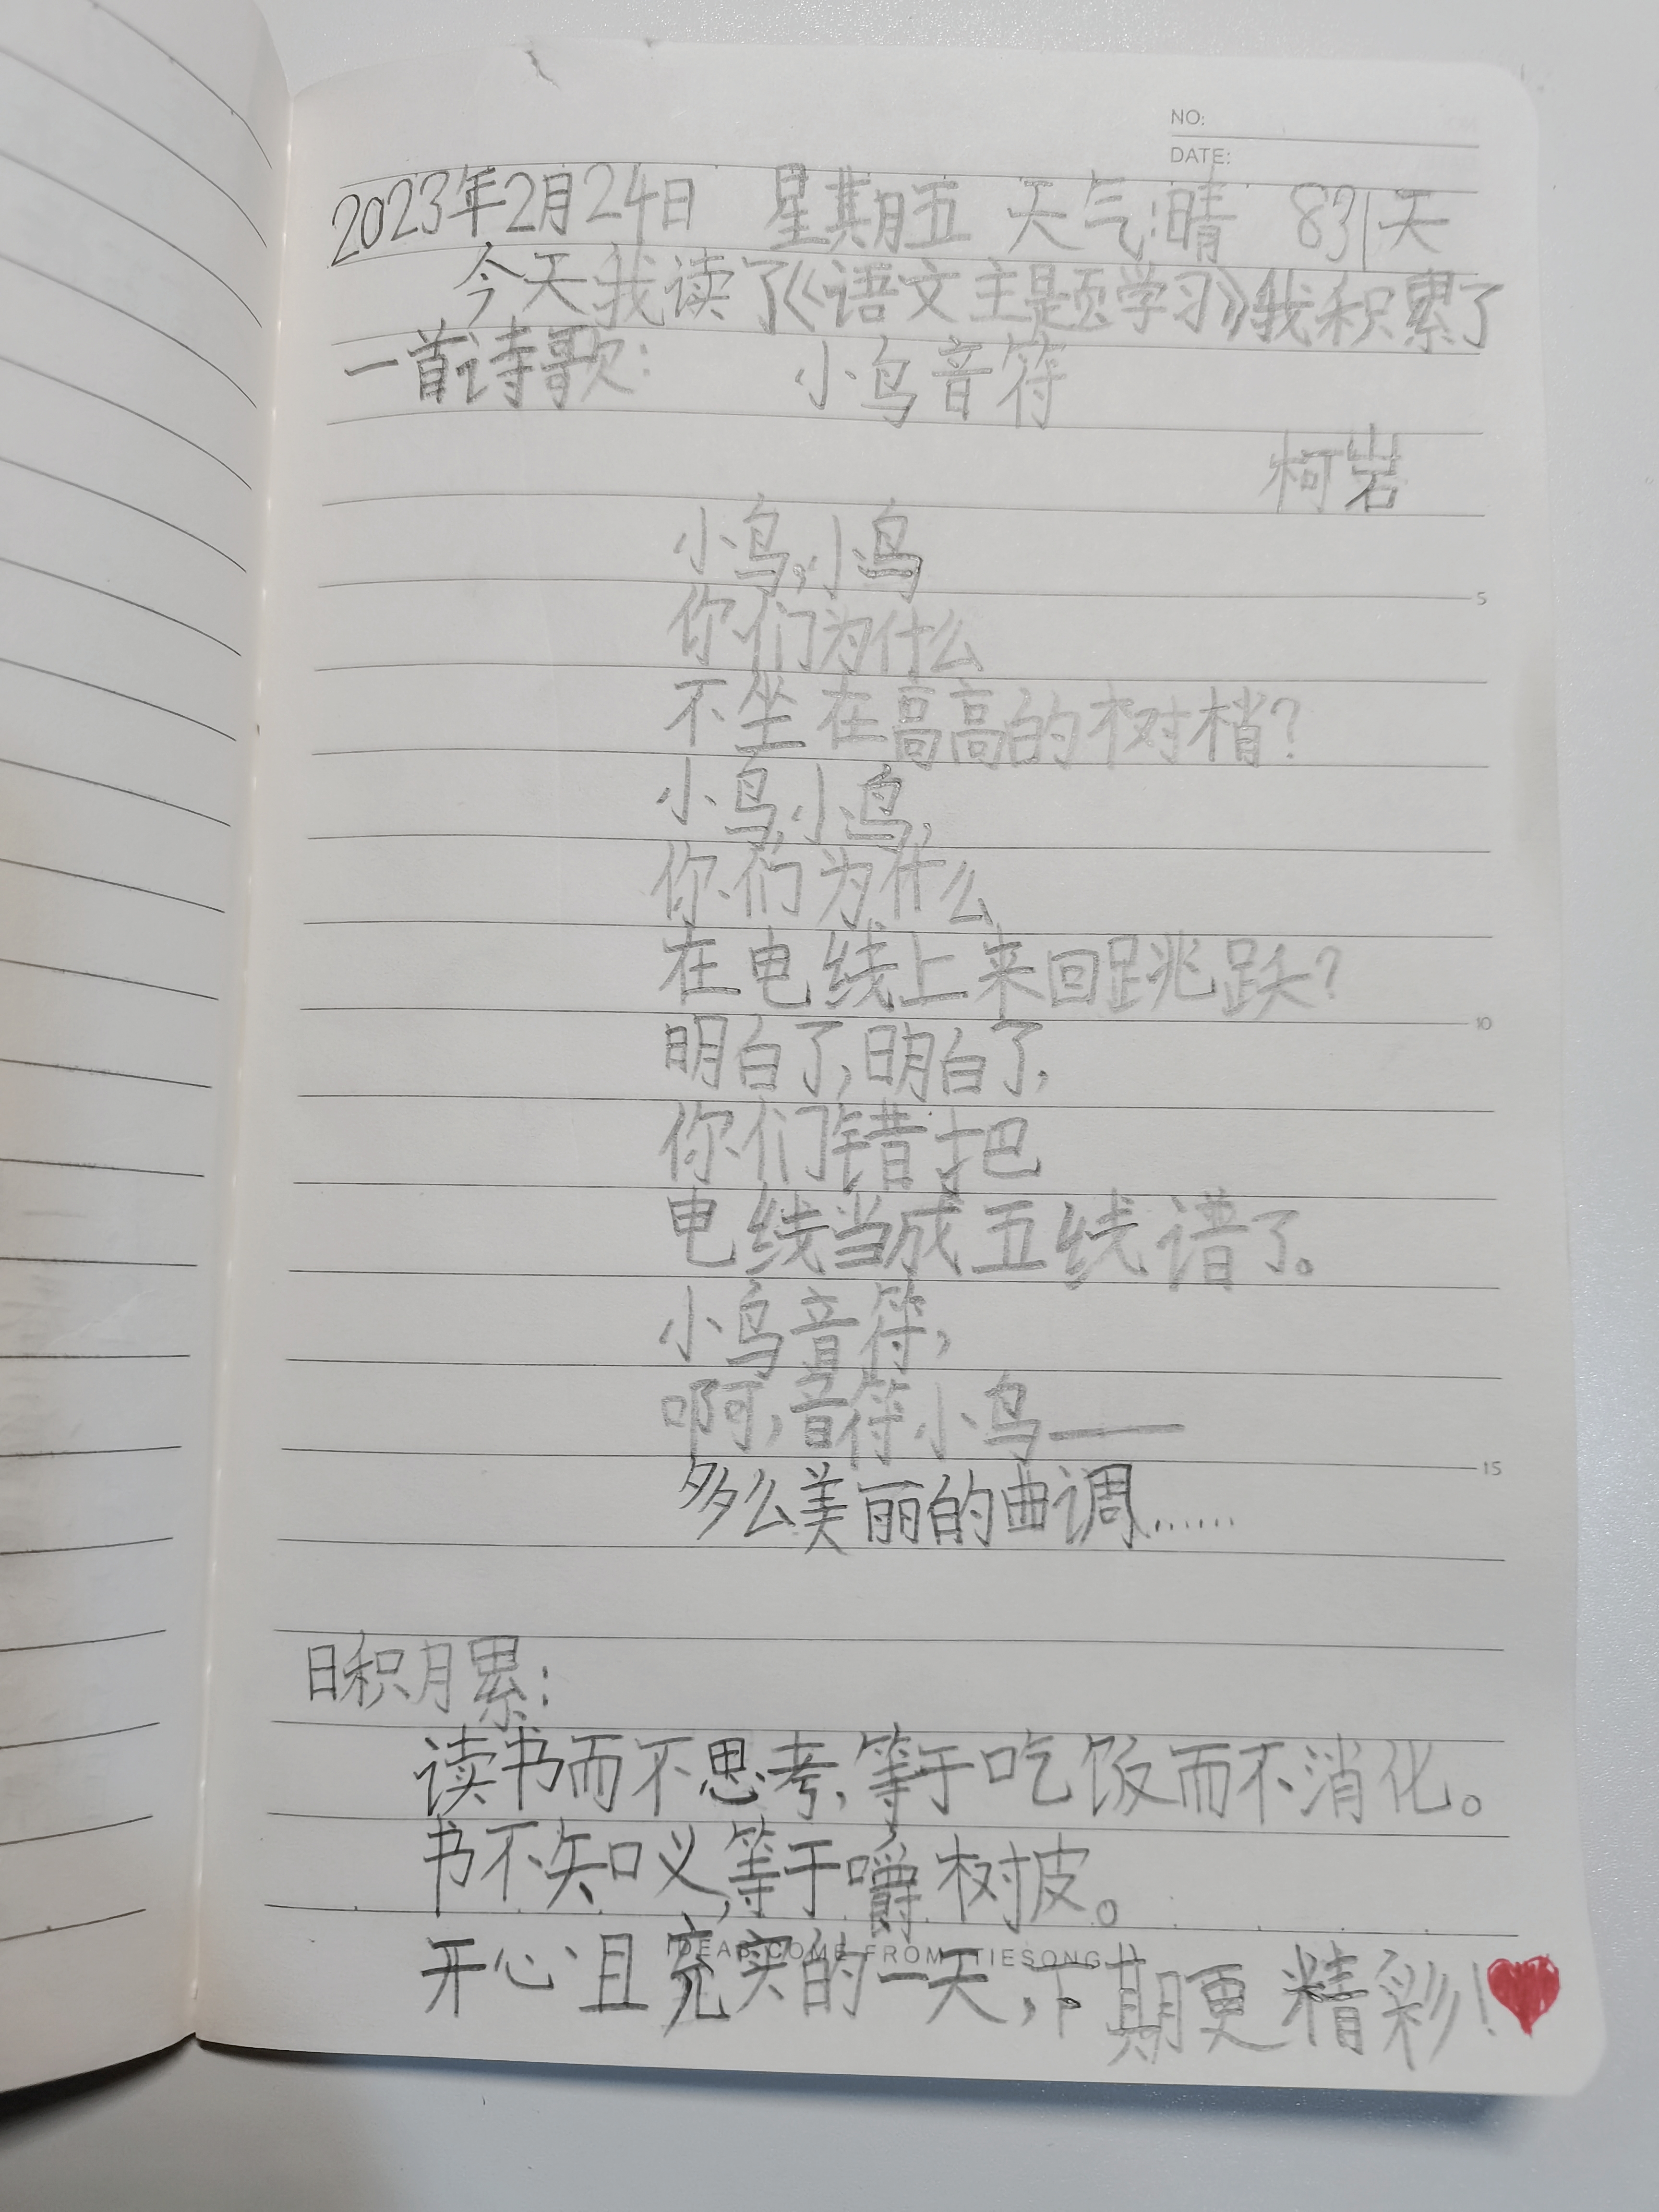 NO:
DATE:
2023年2月24日 星期五 天气:晴 831天
今天我读了《语文主题学习》我积累了
一首诗歌: 小鸟音符
柯岩
小鸟,小鸟
你们为什么
不坐在高高的树梢?
小鸟,小鸟,
你们为什么
在电线上来回跳跃?
明白了,明白了,
你们错把
电线当成五线谱了。
小鸟音符,
啊,音符小鸟——
多么美丽的曲调……
日积月累:
读书而不思考,等于吃饭而不消化。
书不知义,等于嚼树皮。
开心且充实的一天,下期更精彩!
IDEAS COME FROM TIESONG
5
10
15